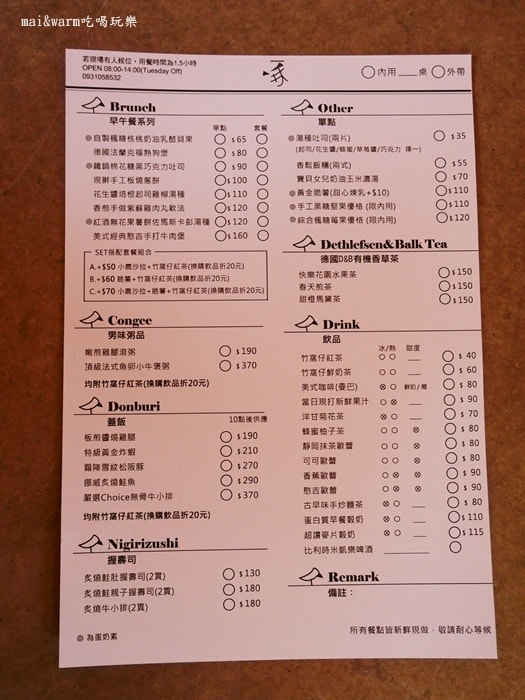 mai&warm吃喝玩樂
若現場有人候位，用餐時間為1.5小時
OPEN 08:00-14:00(Tuesday Off)
0931058532
內用 ___ 桌 外帶
Brunch
早午餐系列
單點 套餐
◎自製楓糖核桃奶油乳酪貝果 $65
德國法蘭克福熱狗堡 $80
◎鐵鍋棉花糖黑巧克力吐司 $90
現擀手工板燒薯餅 $100
花生醬培根起司雞柳湯種 $110
香煎手做紫蘇雞肉丸軟法 $120
◎紅酒無花果薯餅佐馬斯卡彭湯種 $120
美式經典憨吉手打牛肉堡 $160
SET搭配套餐組合
A.+$50 小農沙拉+竹窩仔紅茶(換購飲品折20元)
B.+$60 脆薯+竹窩仔紅茶(換購飲品折20元)
C.+$70 小農沙拉+脆薯+竹窩仔紅茶(換購飲品折20元)
Congee
男味粥品
嫩煎雞腿滾粥 $190
頂級法式魚卵小牛褒粥 $370
均附竹窩仔紅茶(換購飲品折20元)
Donburi
蓋飯 10點後供應
板煎醬燒雞腿 $190
特級黃金炸蝦 $210
霜降雪紋松阪豚 $270
挪威炙燒鮭魚 $290
嚴選Choice無骨牛小排 $370
均附竹窩仔紅茶(換購飲品折20元)
Nigirizushi
握壽司
炙燒鮭肚握壽司(2貫) $130
炙燒鮭親子握壽司(2貫) $180
炙燒牛小排(2貫) $180
◎ 為蛋奶素
Other
單點
◎湯種吐司(兩片) $35
(起司/花生醬/蜂蜜/草莓醬/巧克力 擇一)
香鬆飯糰(兩式) $55
寶貝女兒奶油玉米濃湯 $70
◎黃金脆薯(甜心煉乳+$10) $110
◎手工黑糖堅果優格 (限內用) $110
◎綜合楓糖莓果優格 (限內用) $120
Dethlefsen&Balk Tea
德國D&B有機香草茶
快樂花園水果茶 $150
春天煎茶 $150
甜橙馬黛茶 $150
Drink
飲品
冰/熱 甜度
竹窩仔紅茶 ○ ○ ___ $40
竹窩仔鮮奶茶 ○ ○ ___ $60
美式咖啡(曼巴) ⊗ ○ 鮮奶/糖 $80
當日現打新鮮果汁 ○ ⊗ ___ $90
洋甘菊花茶 ⊗ ○ ___ $70
蜂蜜柚子茶 ○ ○ ⊗ $80
靜岡抹茶歐蕾 ○ ○ ⊗ $80
可可歐蕾 ○ ○ ⊗ $80
香蕉歐蕾 ○ ⊗ ⊗ $90
憨吉歐蕾 ○ ⊗ ⊗ $90
古早味手炒麵茶 ⊗ ○ ___ $80
蛋白質早餐穀奶 ⊗ ○ ___ $110
超讚麥片穀奶 ⊗ ○ ___ $115
比利時米凱樂啤酒 ______
Remark
備註：
所有餐點皆新鮮現做，敬請耐心等候